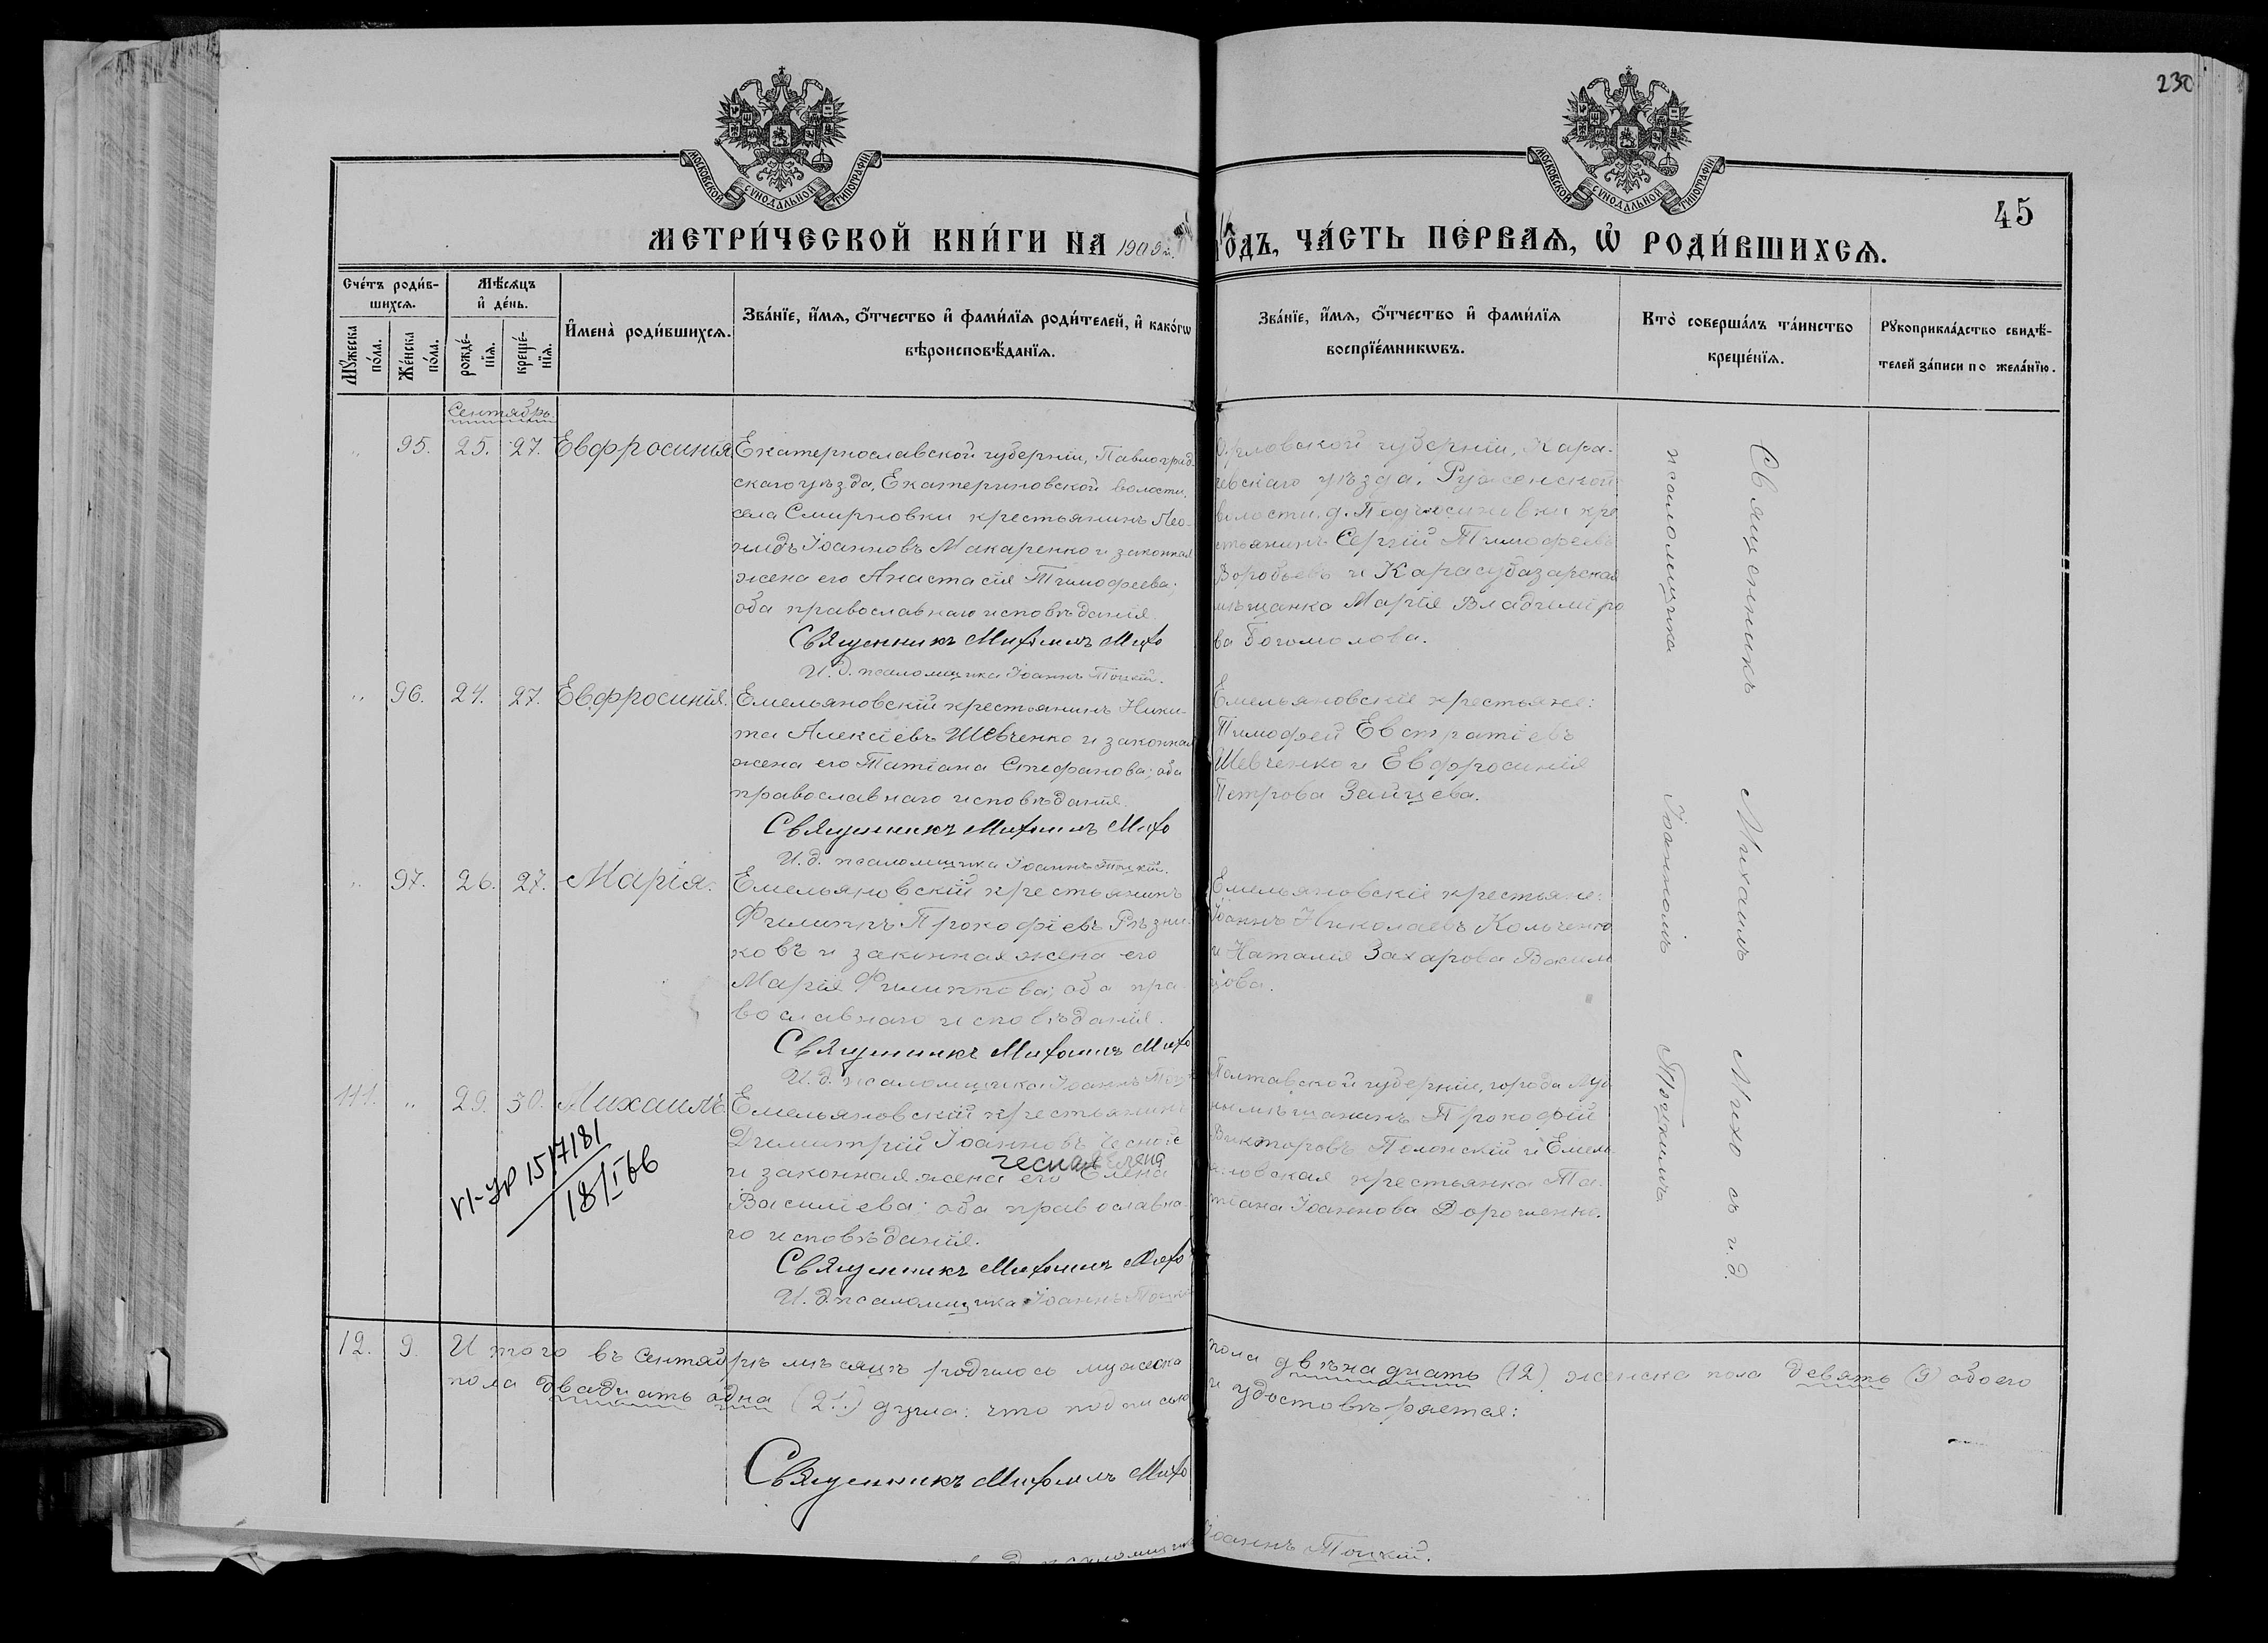 230
45
МОСКОВСКОЙ СУНОДАЛЬНОЙ ТИПОГРАФІИ
МОСКОВСКОЙ СУНОДАЛЬНОЙ ТИПОГРАФІИ
МЕТРИ́ЧЕСКОЙ КНИ́ГИ НА 1909 г.
го́дъ, ЧА́СТЬ ПЕ́РВАѦ, Ѡ҆ РОДИ́ВШИХСѦ.
Счéтъ роди́в-
шихсѧ.
Мꙋ́жеска по́ла.
Же́нска по́ла.
Мѣ́сѧцъ
и҆ де́нь.
рожде́-
нїѧ.
креще́-
нїѧ.
И҆мена̀ роди́вшихсѧ.
Зва́нїе, и҆́мѧ, ѻ҆́тчество и҆ фами́лїѧ роди́телей, и҆ како́гѡ
вѣроисповѣ́данїѧ.
Зва́нїе, и҆́мѧ, ѻ҆́тчество и҆ фами́лїѧ
воспрїе́мникѡвъ.
Кто̀ соверша́лъ та́инство
креще́нїѧ.
Рꙋкоприкла́дство свидѣ́-
телей за́писи по жела́нїю.
Сентябрь
" 95. 25. 27. Евфросинія.
Екатеринославской губерніи, Павлоград-
скаго уѣзда, Екатериновской волости,
села Смирновки крестьянинъ Лео-
нидъ Іоанновъ Макаренко и законная
жена его Анастасія Тимофеева;
оба православнаго исповѣданія.
Священникъ Михаилъ Михо
И. д. псаломщика Іоаннъ Тоцкій.
Орловской губерніи, Кара-
чевскаго уѣзда, Руженской
волости, д. Подъосиновки кре
стьянинъ Сергій Тимофеевъ
Воробьевъ и Карасубазарская
мѣщанка Марія Владиміро
ва Богомолова.
" 96. 24. 27. Евфросинія.
Емельяновскій крестьянинъ Ники-
та Алексіевъ Шевченко и законная
жена его Татіана Стефанова; оба
православнаго исповѣданія.
Священникъ Михаилъ Михо
И. д. псаломщика Іоаннъ Тоцкій.
Емельяновскіе крестьяне:
Тимофей Евстратіевъ
Шевченко и Евфросинія
Петрова Зайцева.
" 97. 26. 27. Марія.
Емельяновскій крестьянинъ
Филиппъ Прокофіевъ Рѣзни-
ковъ и законная жена его
Марія Филиппова; оба пра-
вославнаго исповѣданія.
Священникъ Михаилъ Михо
И. д. псаломщика Іоаннъ Тоцк
Емельяновскіе крестьяне:
Іоаннъ Николаевъ Кольченко
и Наталія Захарова Васил
цова.
111. " 29. 30. Михаилъ.
Емельяновскій крестьянинъ
Димитрій Іоанновъ Чесной
чесная Елена
и законная жена его Елена
Василіева; оба православна-
го исповѣданія.
Священникъ Михаилъ Михо
И. д. псаломщика Іоаннъ Тоцкі
Полтавской губерніи, города Луб
ны мѣщанинъ Прокофій
Викторовъ Полонскій и Емель-
яновская крестьянка Та-
тіана Іоаннова Дорошенко.
VI-УР 1517181
18/I 66
Священникъ Михаилъ Михо съ и. д.
псаломщика Іоанномъ Тоцкимъ
12. 9. Итого въ Сентябрѣ мѣсяцѣ родилось мужеска
пола двѣнадцать (12) женска пола девять (9) обоего
пола двадцать одна (21) душа: что подписью
и удостовѣряется:
Священникъ Михаилъ Михо
псаломщика
Іоаннъ Тоцкій.